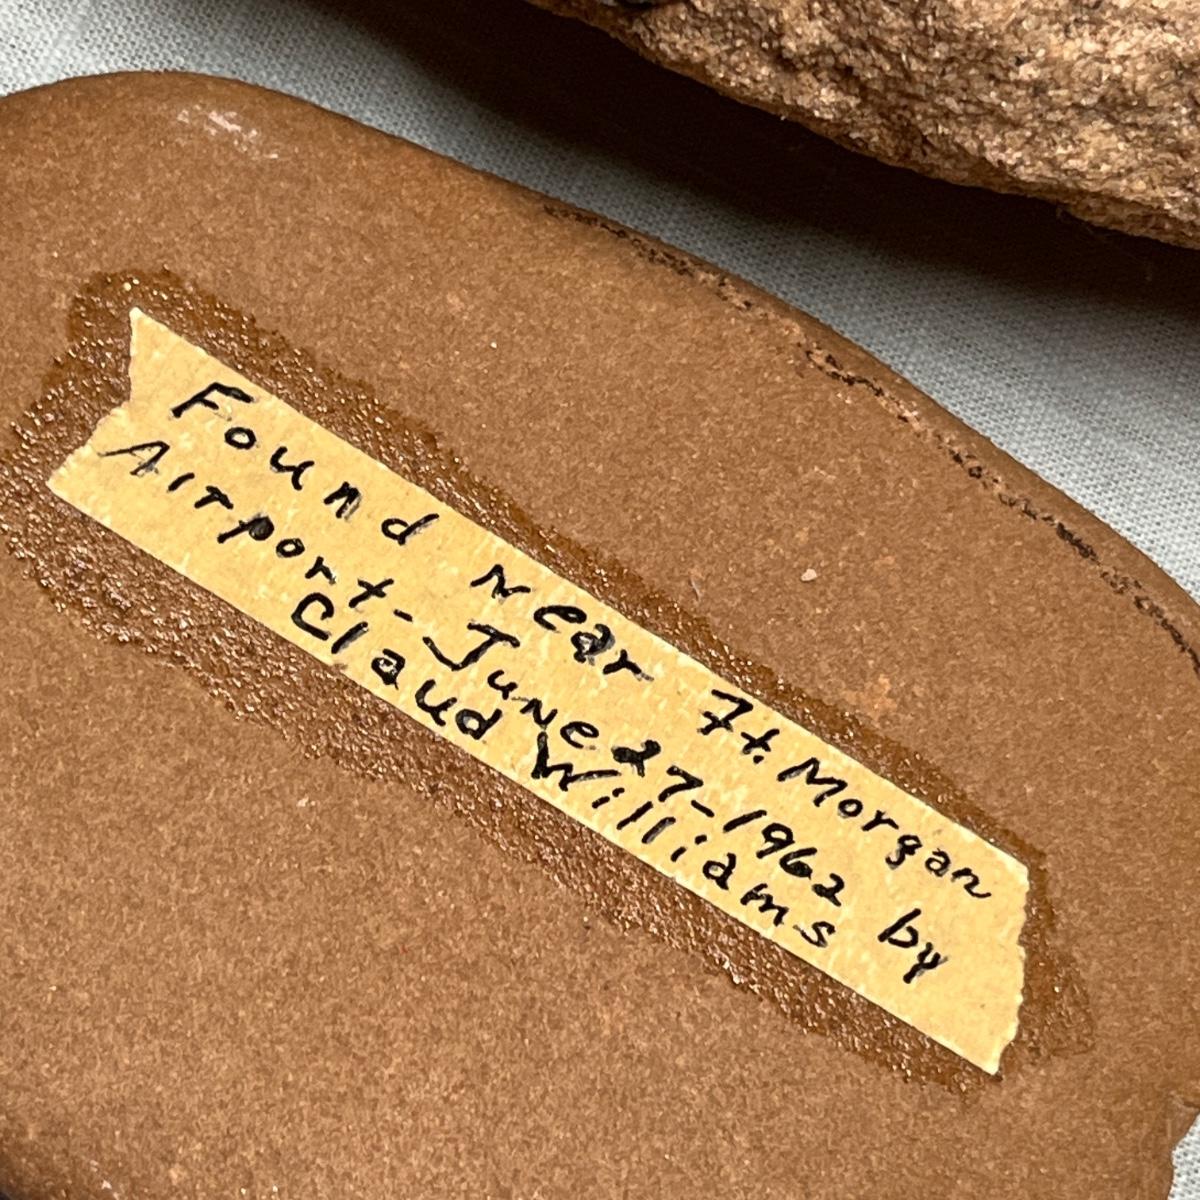 Found Near Ft. Morgan
Airport-June 27-1962 by
Claud Williams